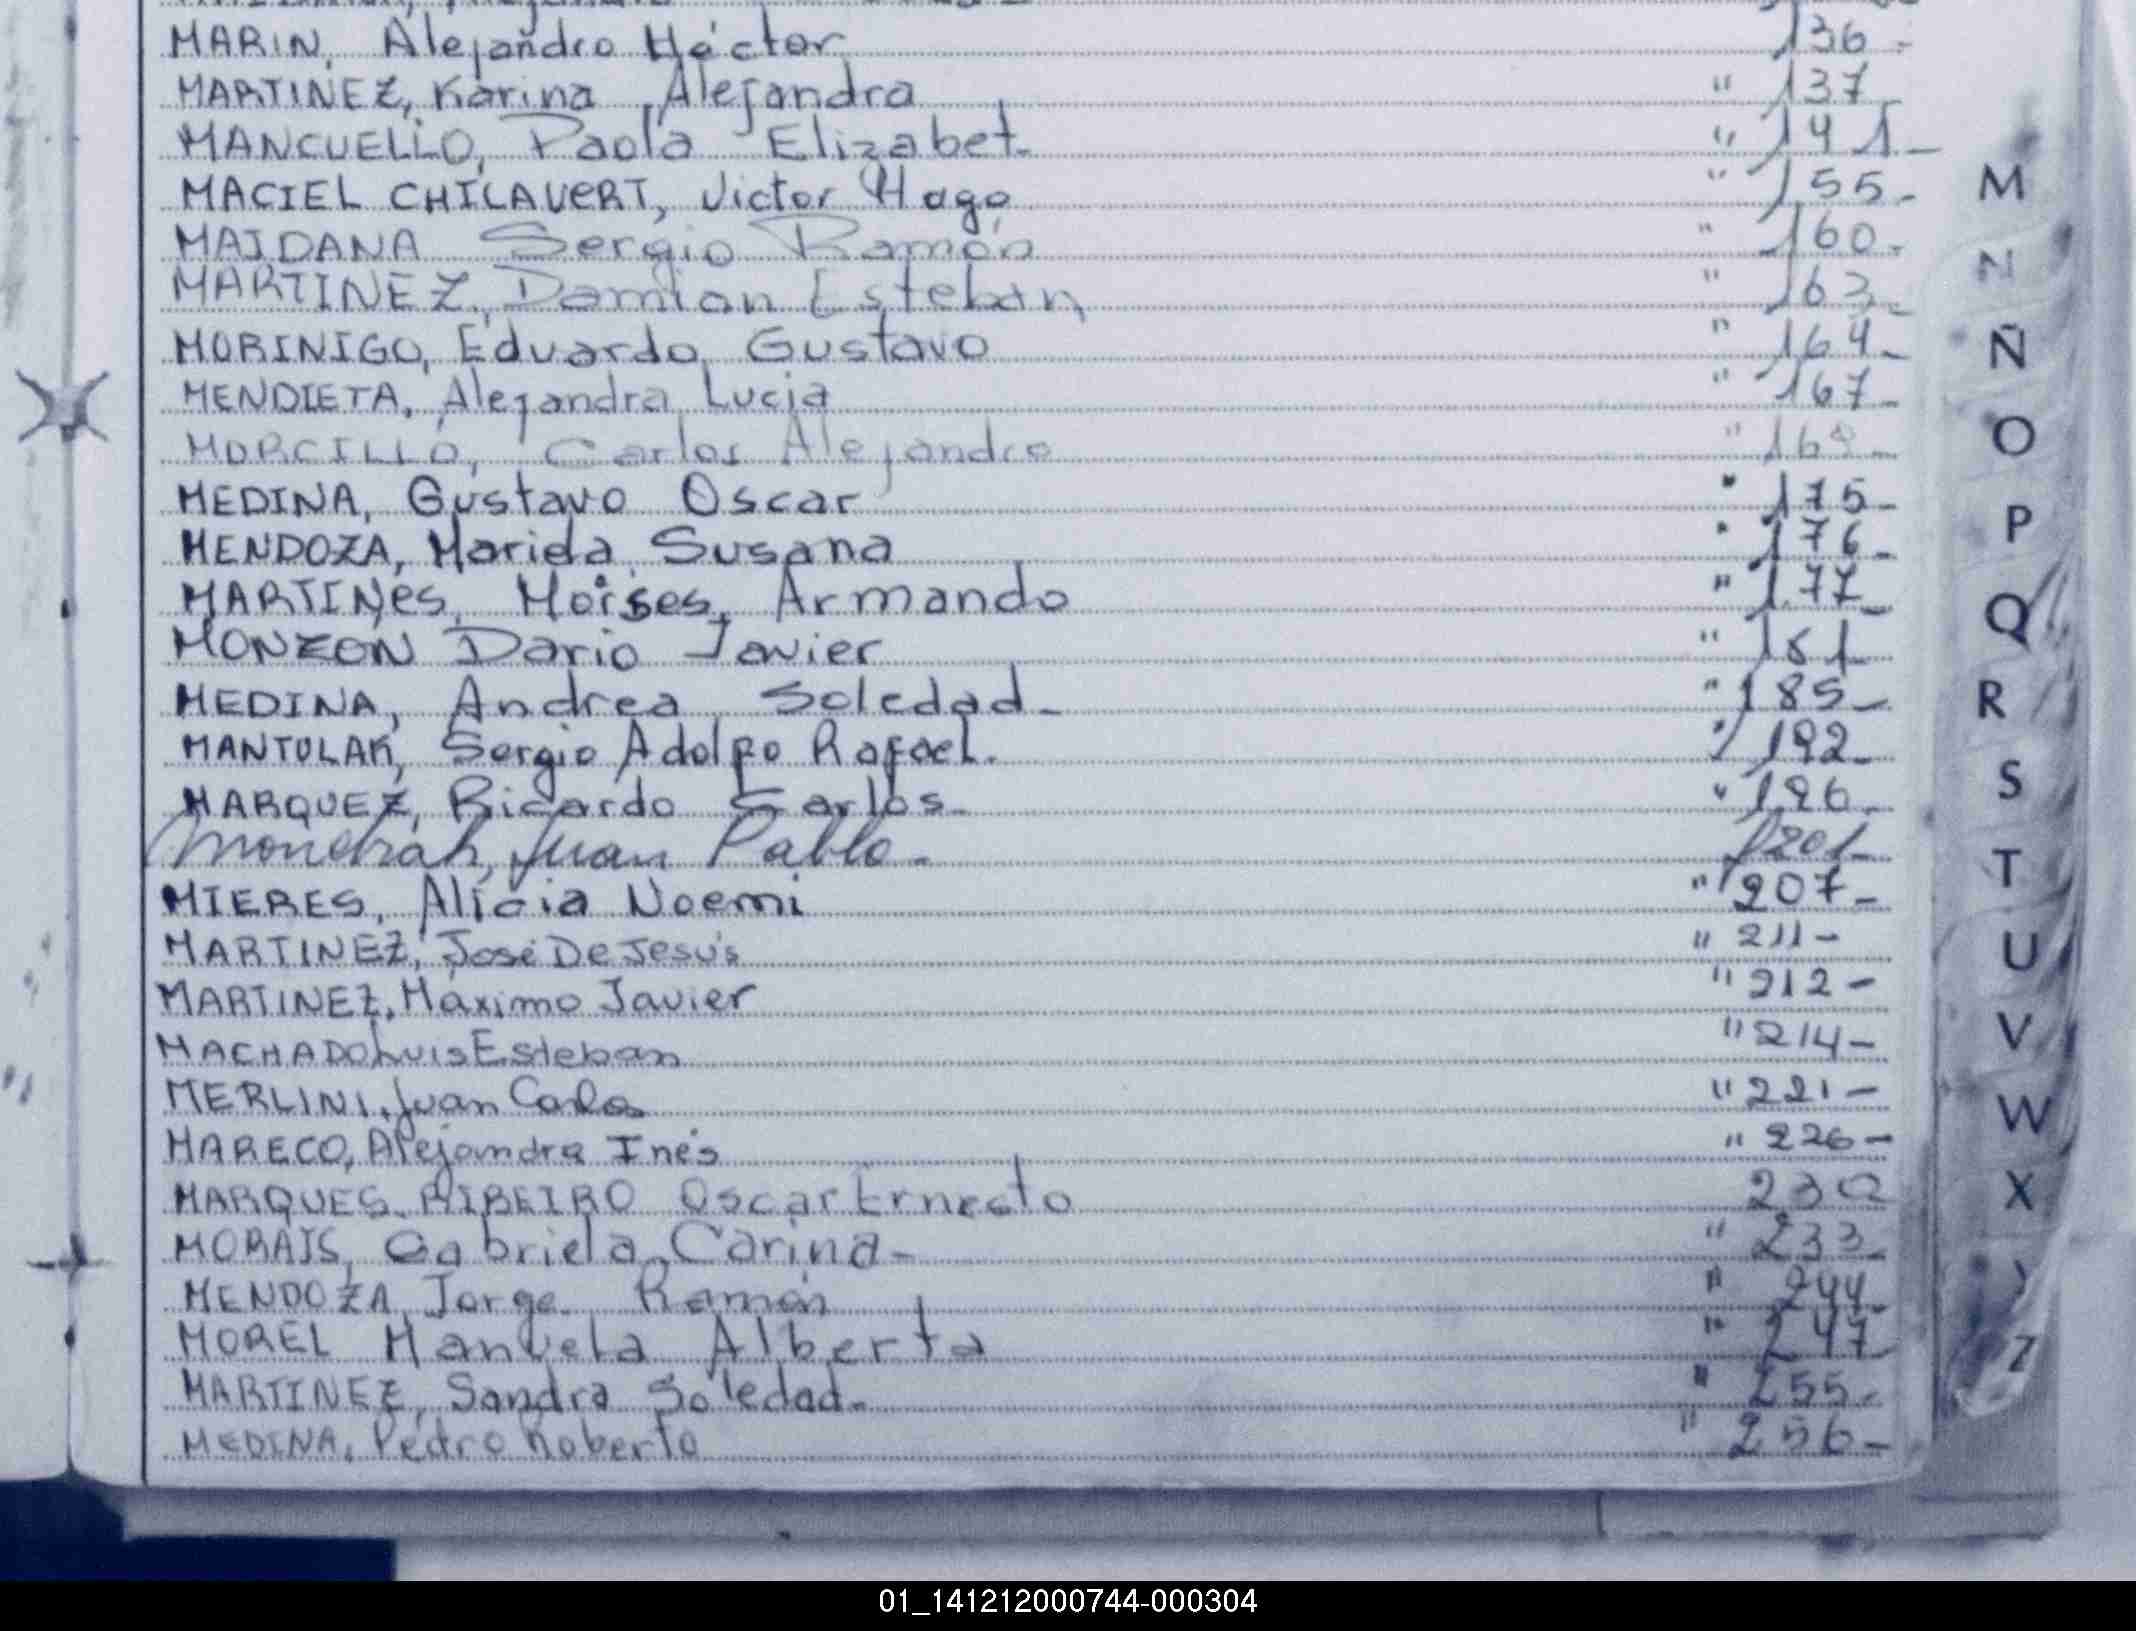 MARIN, Alejandro Héctor 136 -
MARTINEZ, Karina Alejandra " 137
MANCUELLO, Paola Elizabet- " 141-
MACIEL CHILAVERT, Victor Hugo " 155-
MAIDANA Sergio Ramón " 160-
MARTINEZ, Damian Esteban " 163-
MORINIGO, Eduardo Gustavo " 164-
MENDIETA, Alejandra Lucia " 167-
MORCILLO, Carlos Alejandro "
MEDINA, Gustavo Oscar " 175-
MENDOZA, Mariela Susana " 176-
MARTINes, Moises, Armando " 177-
MONZON Dario Javier " 181-
MEDINA, Andrea Soledad- " 185-
MANTULAK, Sergio Adolfo Rafael. " 192-
MARQUEZ, Ricardo Carlos- " 196-
Juan Pablo- 201-
MIERES, Alicia Noemi " 207-
MARTINEZ, José De Jesús " 211-
MARTINEZ, Máximo Javier " 212-
MACHADO Luis Esteban " 214-
MERLINI, Juan Carlos " 221-
MARECO, Alejandra Inés " 226-
MARQUES RIBEIRO Oscar Ernesto 230
MORAIS, Gabriela Carina- " 233-
MENDOZA, Jorge Ramón " 244-
MOREL Manuela Alberta " 247-
MARTINEZ, Sandra Soledad- " 255-
MEDINA, Pedro Roberto " 256-
M
N
Ñ
O
P
Q
R
S
T
U
V
W
X
Z
01_141212000744-000304